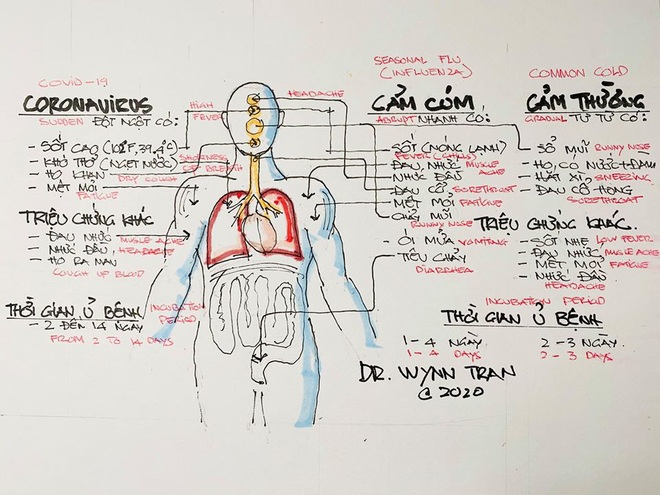 COVID-19
CORONAVIRUS
SUDDEN ĐỘT NGỘT CÓ:
- SỐT CAO (102°F, 39,4°C)
HIGH FEVER
- KHÓ THỞ (NGẸT NƯỚC)
SHORTNESS OF BREATH
- HO KHAN DRY COUGH
- MỆT MỎI
FATIGUE
TRIỆU CHỨNG KHÁC
- ĐAU NHỨC MUSCLE ACHE
- NHỨC ĐẦU, HEADACHE
- HO RA MÁU
COUGH UP BLOOD
THỜI GIAN Ủ BỆNH
INCUBATION PERIOD
- 2 ĐẾN 14 NGÀY
FROM 2 TO 14 DAYS
HEADACHE
SEASONAL FLU
(INFLUENZA)
CẢM CÚM
ABRUPT NHANH CÓ:
- SỐT (NÓNG LẠNH)
FEVER (CHILLS)
- ĐAU NHỨC MUSCLE ACHE
- NHỨC ĐẦU
- ĐAU CỔ SORE THROAT
- MỆT MỎI FATIGUE
- CHẢY MŨI
RUNNY NOSE
- ÓI MỬA VOMITING
- TIÊU CHẢY
DIARRHEA
COMMON COLD
CẢM THƯỜNG
GRADUAL TỪ TỪ CÓ:
- SỔ MŨI RUNNY NOSE
- HO, CÓ NƯỚC + ĐÀM
- HẮT XÌ, SNEEZING
- ĐAU CỔ HỌNG
SORE THROAT
TRIỆU CHỨNG KHÁC.
- SỐT NHẸ LOW FEVER
- ĐAU NHỨC, MUSCLE ACHE
- MỆT MỎI FATIGUE
- NHỨC ĐẦU
HEADACHE
INCUBATION PERIOD
THỜI GIAN Ủ BỆNH
1 - 4 NGÀY
1 - 4 DAYS
2 - 3 NGÀY.
2 - 3 DAYS
DR. WYNN TRAN
@ 2020